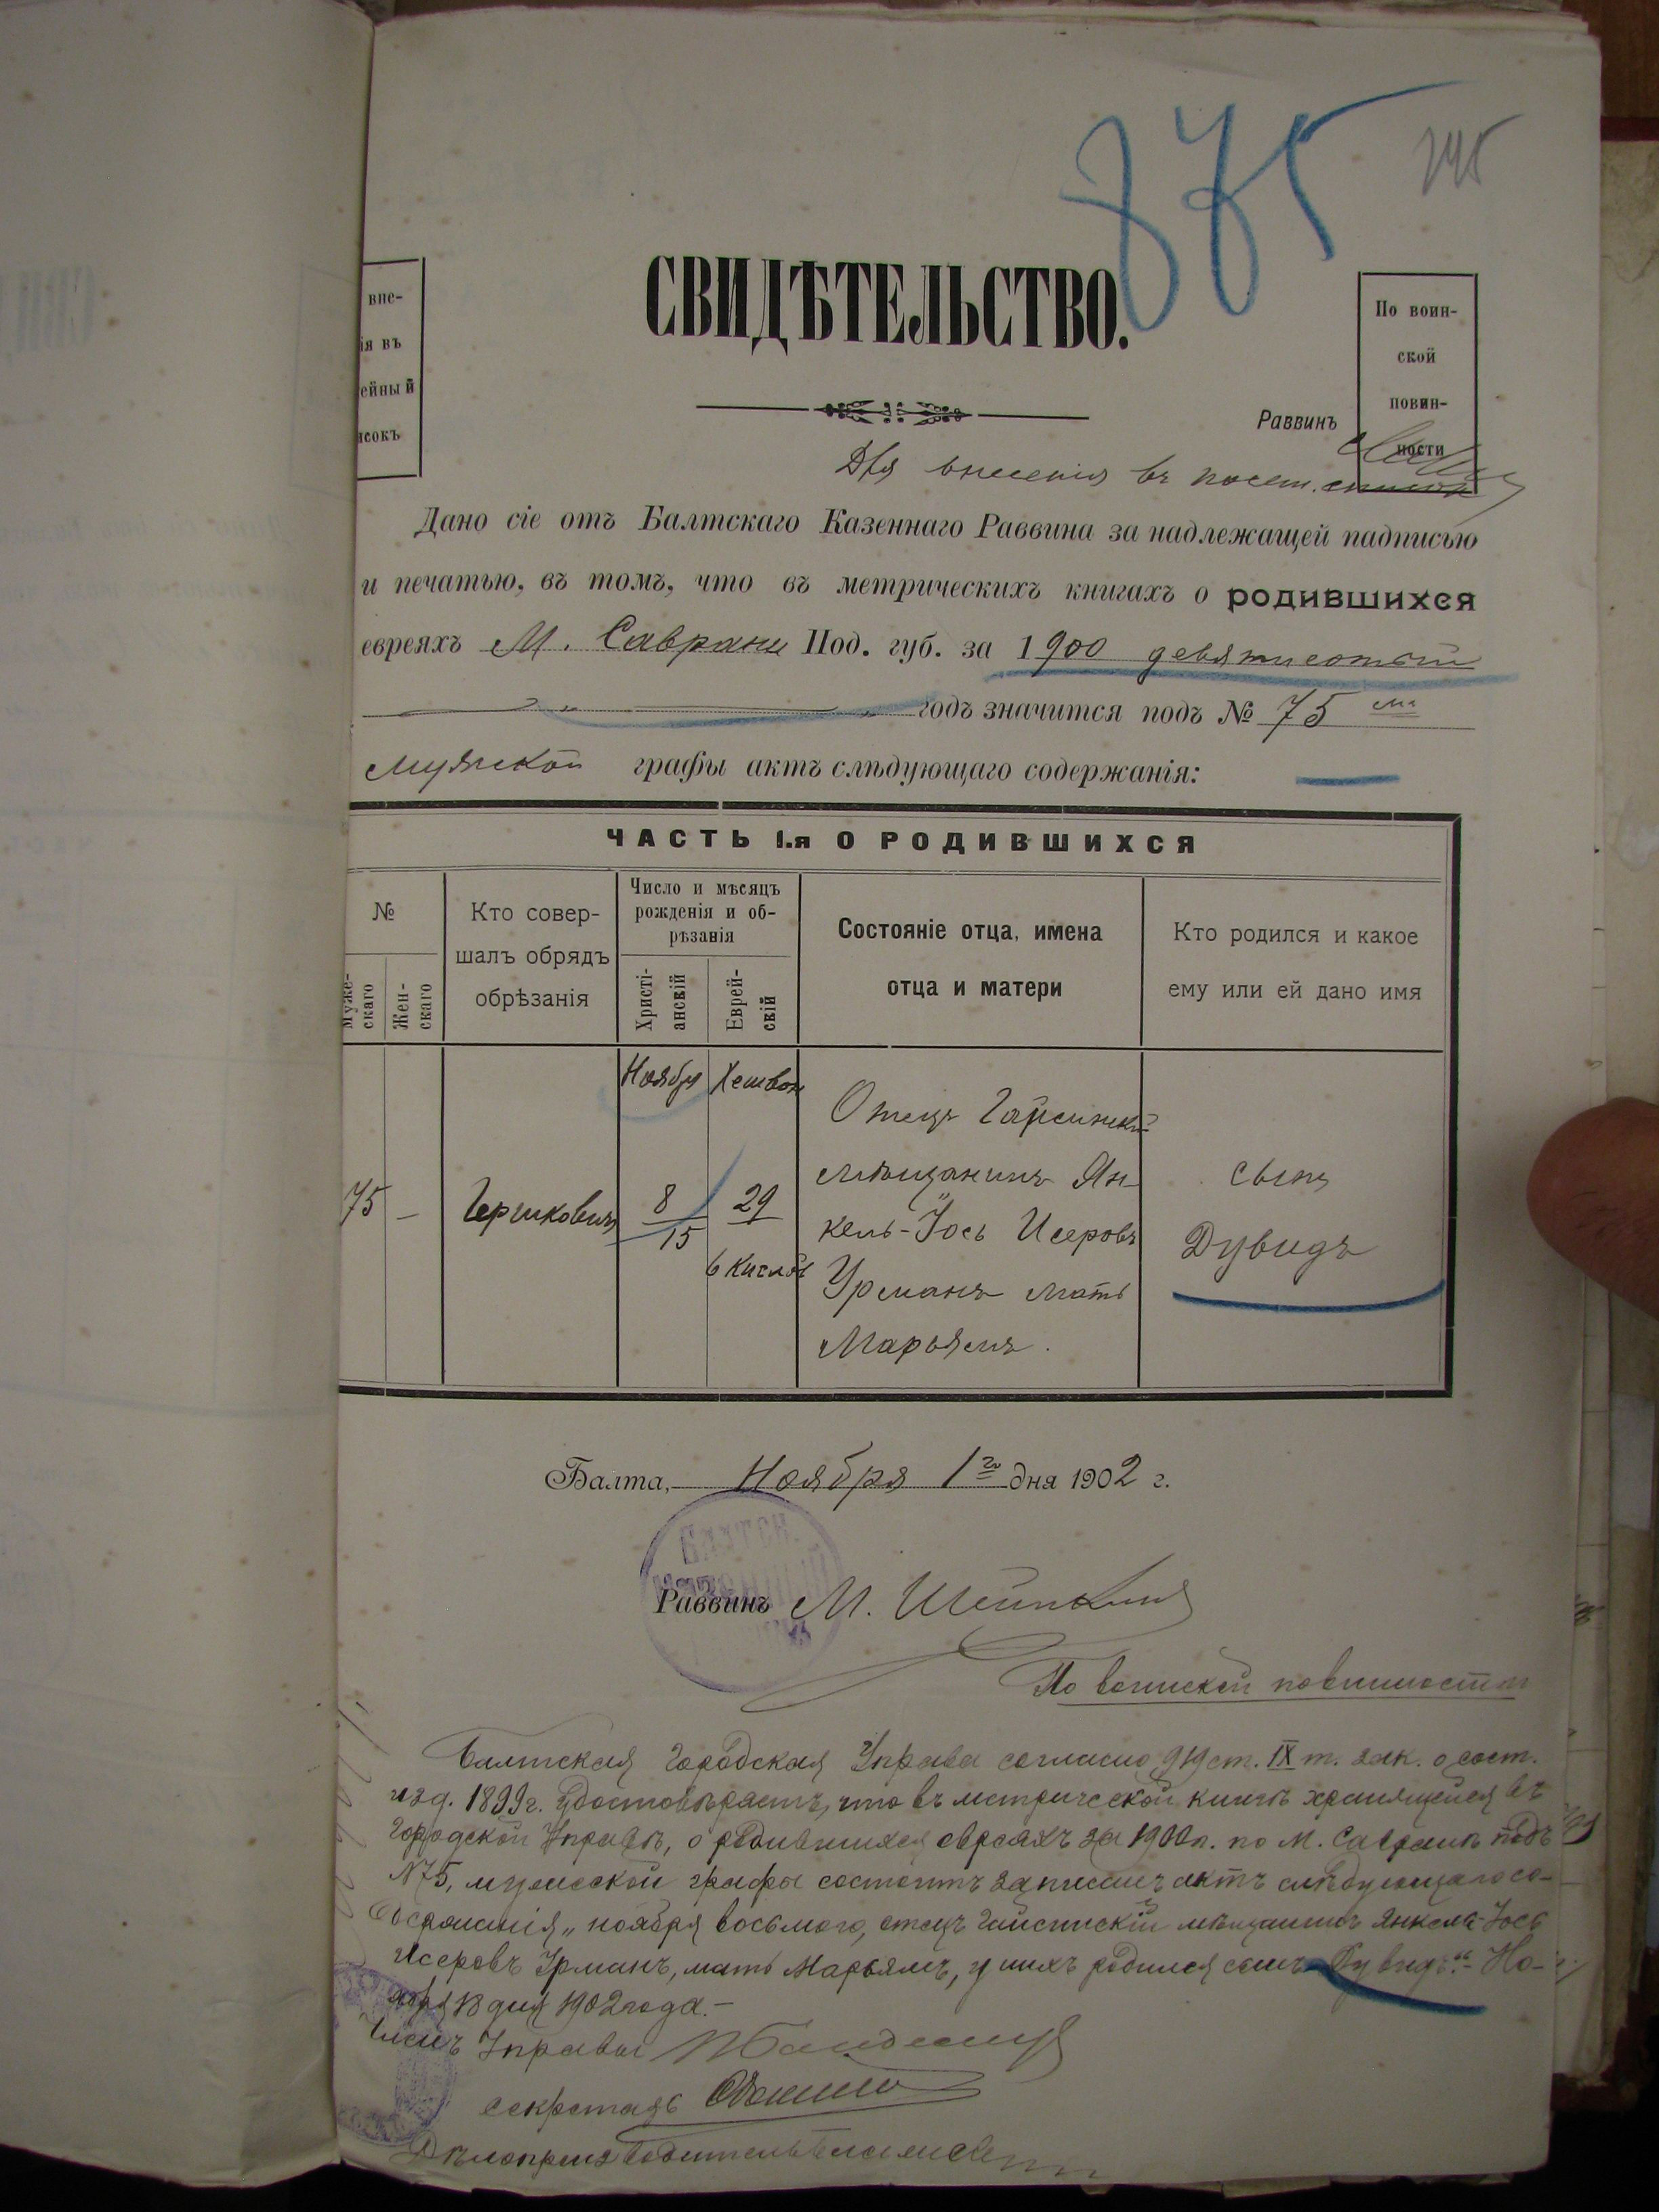 375
245
СВИДѢТЕЛЬСТВО.
вне-
ія въ
ейный
исокъ
По воин-
ской
повин-
ности
Раввинъ
Для внесенія въ посем. списокъ
Дано сіе отъ Балтскаго Казеннаго Раввина за надлежащей надписью
и печатью, въ томъ, что въ метрическихъ книгахъ о родившихся
евреяхъ М. Саврани Под. губ. за 1900 девятисотый
годъ значится подъ № 75 мъ
мужской графы актъ слѣдующаго содержанія:
ЧАСТЬ I.я О РОДИВШИХСЯ
№
Муже-
скаго
Жен-
скаго
Кто совер-
шалъ обрядъ
обрѣзанія
Число и мѣсяцъ
рожденія и об-
рѣзанія
Христі-
анскій
Еврей-
скій
Состояніе отца, имена
отца и матери
Кто родился и какое
ему или ей дано имя
75
—
Гершковичъ
Ноября
8
15
Хешвон
29
6 Кислев
Отецъ Гайсинскій
мѣщанинъ Ян-
кель-Іось Исеровъ
Урманъ мать
Марьямъ.
сынъ
Дувидъ
Балта, Ноября 1го дня 1902 г.
БАЛТСК.
Раввинъ М.
По воинской повинности
Балтская Городская Управа согласно 919 ст. IX т. зак. о сост.
изд. 1899 г. удостовѣряетъ, что въ метрической книгѣ хранящейся въ
Городской Управѣ, о родившихся евреяхъ за 1900 г. по М. Саврани подъ
№ 75, мужской графы состоитъ записанъ актъ слѣдующаго со-
держанія „ноября восьмого, отецъ Гайсинскій мѣщанинъ Янкель-Іось
Исеровъ Урманъ, мать Марьямъ, у нихъ родился сынъ Дувидъ." Но-
ября 13 дня 1902 года.—
Членъ Управы
Секретарь
Дѣлопроизводитель